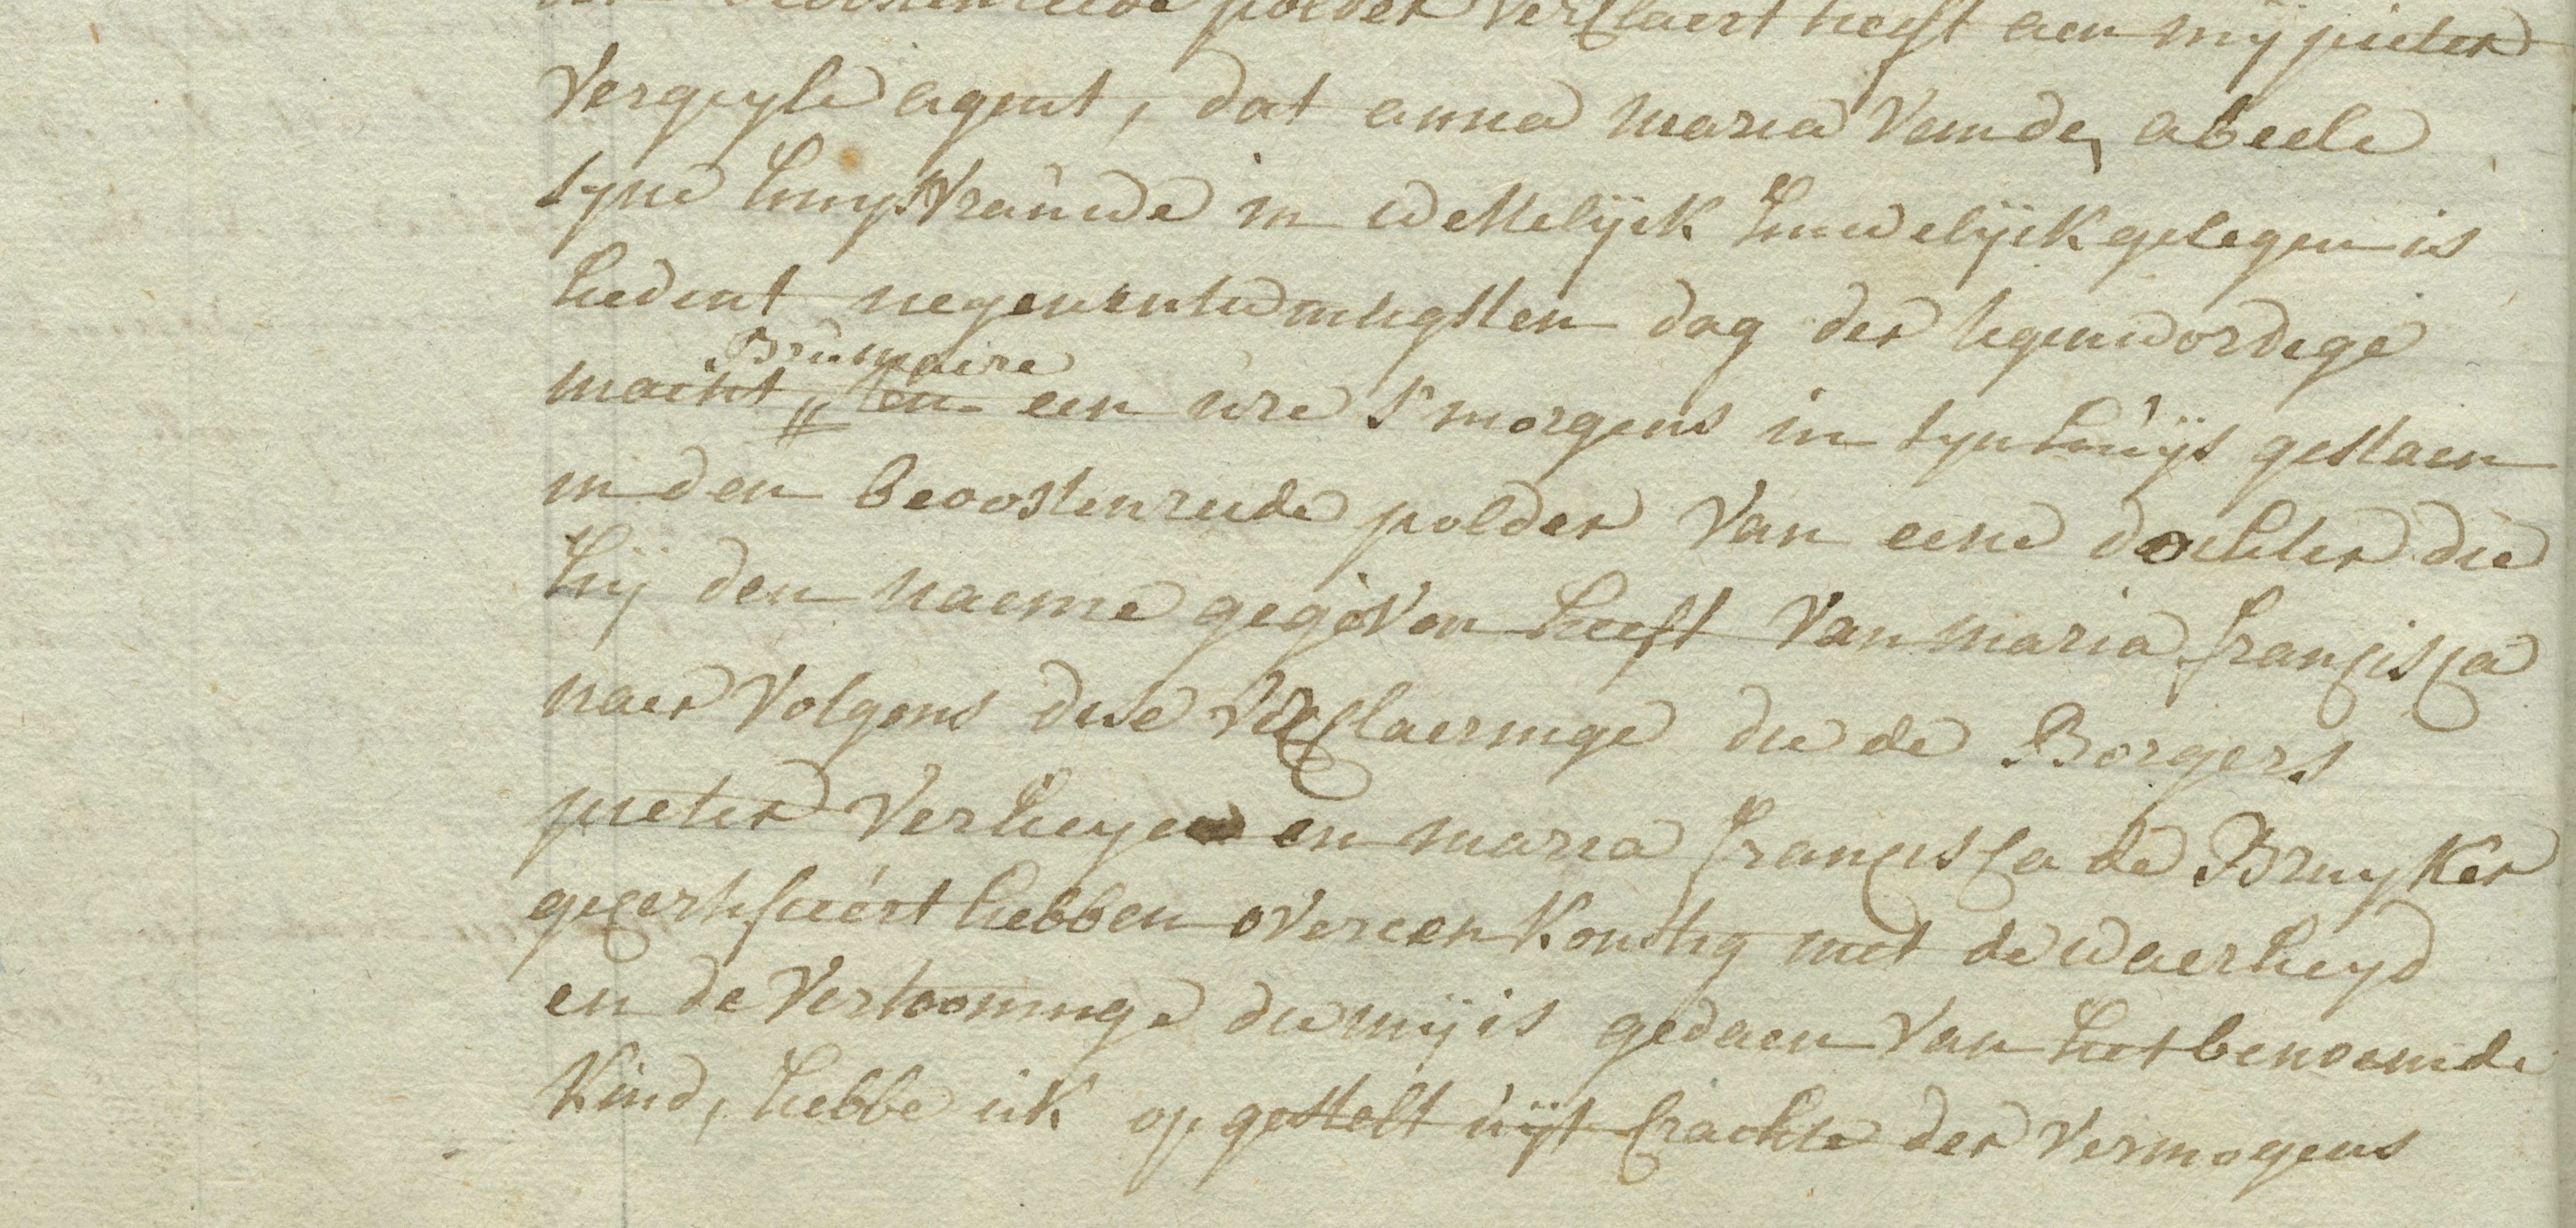 den beoostenreede polder verclaert heeft aen mij pieter
Vergeyle agent, dat anna maria Van de abeele
syne huysvrauwe in wettelijck huwelijck gelegen is
hedent negenentwintigsten dag der tegenwordege
Brumaire
maent „ ten een ure s'morgens in syn huijs gestaen
in den beoostenreede polder Van eene dochter die
hij den naeme gegeven heeft Van maria francisca
naer Volgens dese verclaeringe die de Borgers
pieter Verheyen en maria francisca de Bruyker
gecertifieert hebben overeenkomstig met de waerheyd
en de Vertooninge die mij is gedaen Van het benoemde
Kind, hebbe ick opgestelt uijt crachte der Vermogens